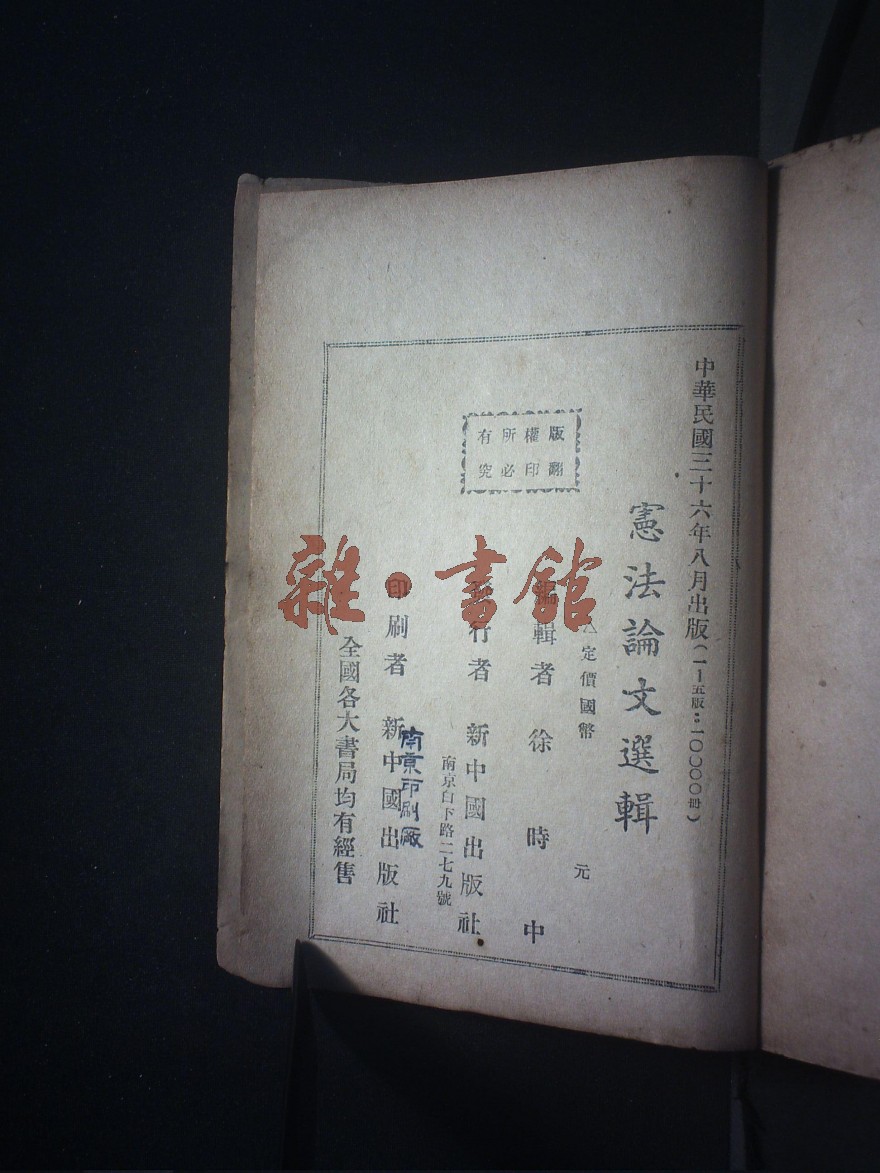 中華民國三十六年八月出版(一—五版:一〇〇〇〇冊)
憲法論文選輯
定價國幣 元
版權所有
翻印必究
編輯者 徐時中
發行者 新中國出版社
南京白下路二七九號
印刷者 新中國出版社
南京印刷廠
全國各大書局均有經售
雜·書館